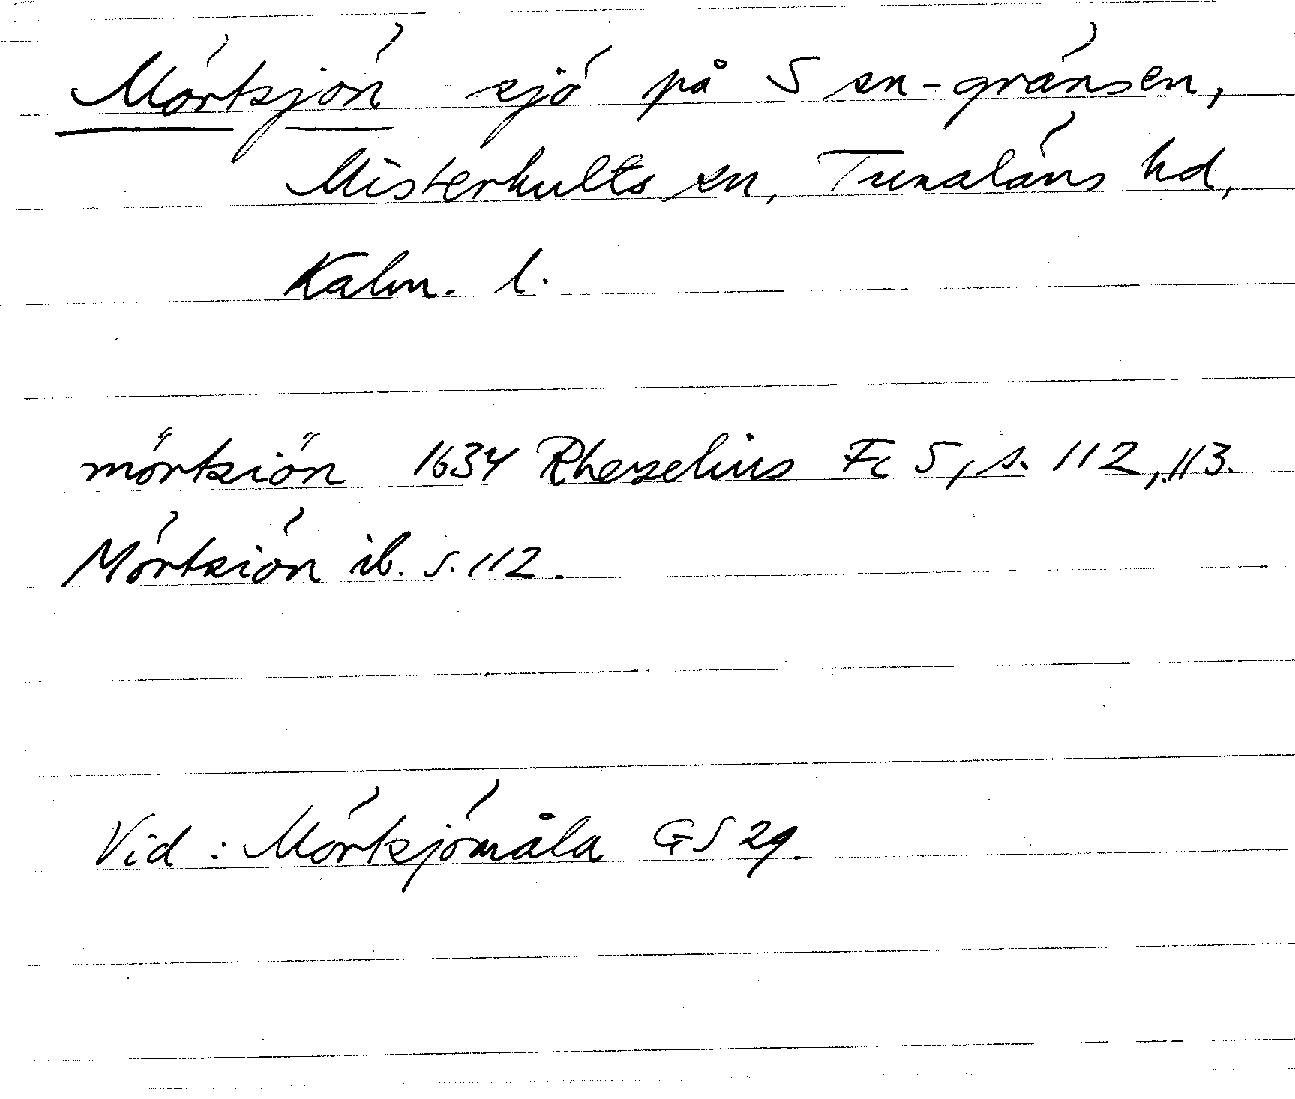 Mörtsjön sjö på S sn-gränsen,
Misterhults sn, Tunaläns hd,
Kalm. l.
mörtsiön 1634 Rhezelius Fc 5, s. 112, 113.
Mörtsiön ib. s. 112.
Vid: Mörtsjömåla GS 29.